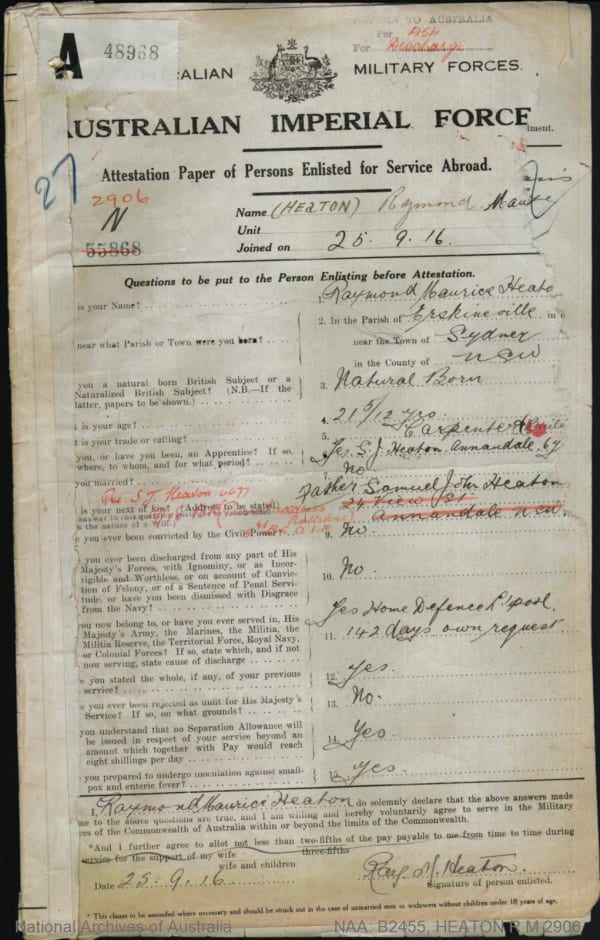 RETURN TO AUSTRALIA
Per
For Discharge
A
48968
AUSTRALIAN MILITARY FORCES.
AUSTRALIAN IMPERIAL FORCE
tment.
Attestation Paper of Persons Enlisted for Service Abroad.
27
2906
N
55868
Name (HEATON) Raymond Maurice
Unit
Joined on 25. 9. 16.
Questions to be put to the Person Enlisting before Attestation.
is your Name? 1. Raymond Maurice Heato
near what Parish or Town were you born? 2. In the Parish of Erskineville in
near the Town of Sydney
in the County of NSW
you a natural born British Subject or a
Naturalized British Subject? (N.B.—If the
latter, papers to be shown.) 3. Natural Born
t is your age? 4. 21 5/12 yrs
t is your trade or calling? 5. Carpenter &
you, or have you been, an Apprentice? If so,
where, to whom, and for what period? Yes. S. J. Heaton. Annandale, 6y
you married? No
Pte S.J. Heaton 6697
is your next of kin? (Address to be stated) Father Samuel John Heaton
24 View St
Annandale NSW
e you ever been convicted by the Civil Power? 9. No.
e you ever been discharged from any part of His
Majesty's Forces, with Ignominy, or as Incor-
rigible and Worthless, or on account of Convic-
tion of Felony, or of a Sentence of Penal Servi-
tude, or have you been dismissed with Disgrace
from the Navy? 10. No.
you now belong to, or have you ever served in, His
Majesty's Army, the Marines, the Militia, the
Militia Reserve, the Territorial Force, Royal Navy,
or Colonial Forces? If so, state which, and if not
now serving, state cause of discharge 11. Yes Home Defence L'pool.
142 days own request
e you stated the whole, if any, of your previous
service? 12. Yes.
e you ever been rejected as unfit for His Majesty's
Service? If so, on what grounds? 13. No.
you understand that no Separation Allowance will
be issued in respect of your service beyond an
amount which together with Pay would reach
eight shillings per day 14. Yes
you prepared to undergo inoculation against small-
pox and enteric fever? 15. Yes.
I, Raymond Maurice Heaton, do solemnly declare that the above answers made
me to the above questions are true, and I am willing and hereby voluntarily agree to serve in the Military
ces of the Commonwealth of Australia within or beyond the limits of the Commonwealth.
*And I further agree to allot not less than two-fifths of the pay payable to me from time to time during
three-fifths
service for the support of my wife
wife and children
Date 25. 9. 16
Ray M. Heaton.
Signature of person enlisted.
* This clause to be amended where necessary and should be struck out in the case of unmarried men or widowers without children under 18 years of age.
National Archives of Australia
NAA: B2455, HEATON R M 2906